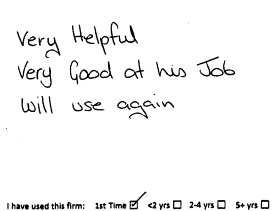 Very Helpful
Very Good at his Job
Will use again
I have used this firm: 1st Time ☑ <2 yrs ☐ 2-4 yrs ☐ 5+ yrs ☐